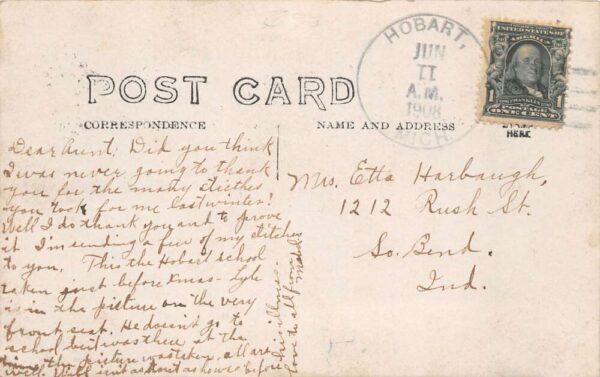 POST CARD
CORRESPONDENCE
NAME AND ADDRESS
HERE
HOBART,
JUN
11
A.M.
1908
MICH.
UNITED STATES OF
AMERICA
FRANKLIN
POSTAGE
ONE CENT
1
Dear Aunt: Did you think
I was never going to thank
you for the many stitches
you took for me last winter!
Well I do thank you and to prove
it I'm sending a few of my stitches
to you. This the Hobart school
taken just before Xmas - Lyle
is in the picture on the very
front seat. He doesn't go to
school but was there at the
time the picture was taken. all are
well. Will isn't as stout as he was before
his illness.
Love to all from
Mabel
Mrs. Etta Harbaugh,
1212 Rush St.
So. Bend.
Ind.